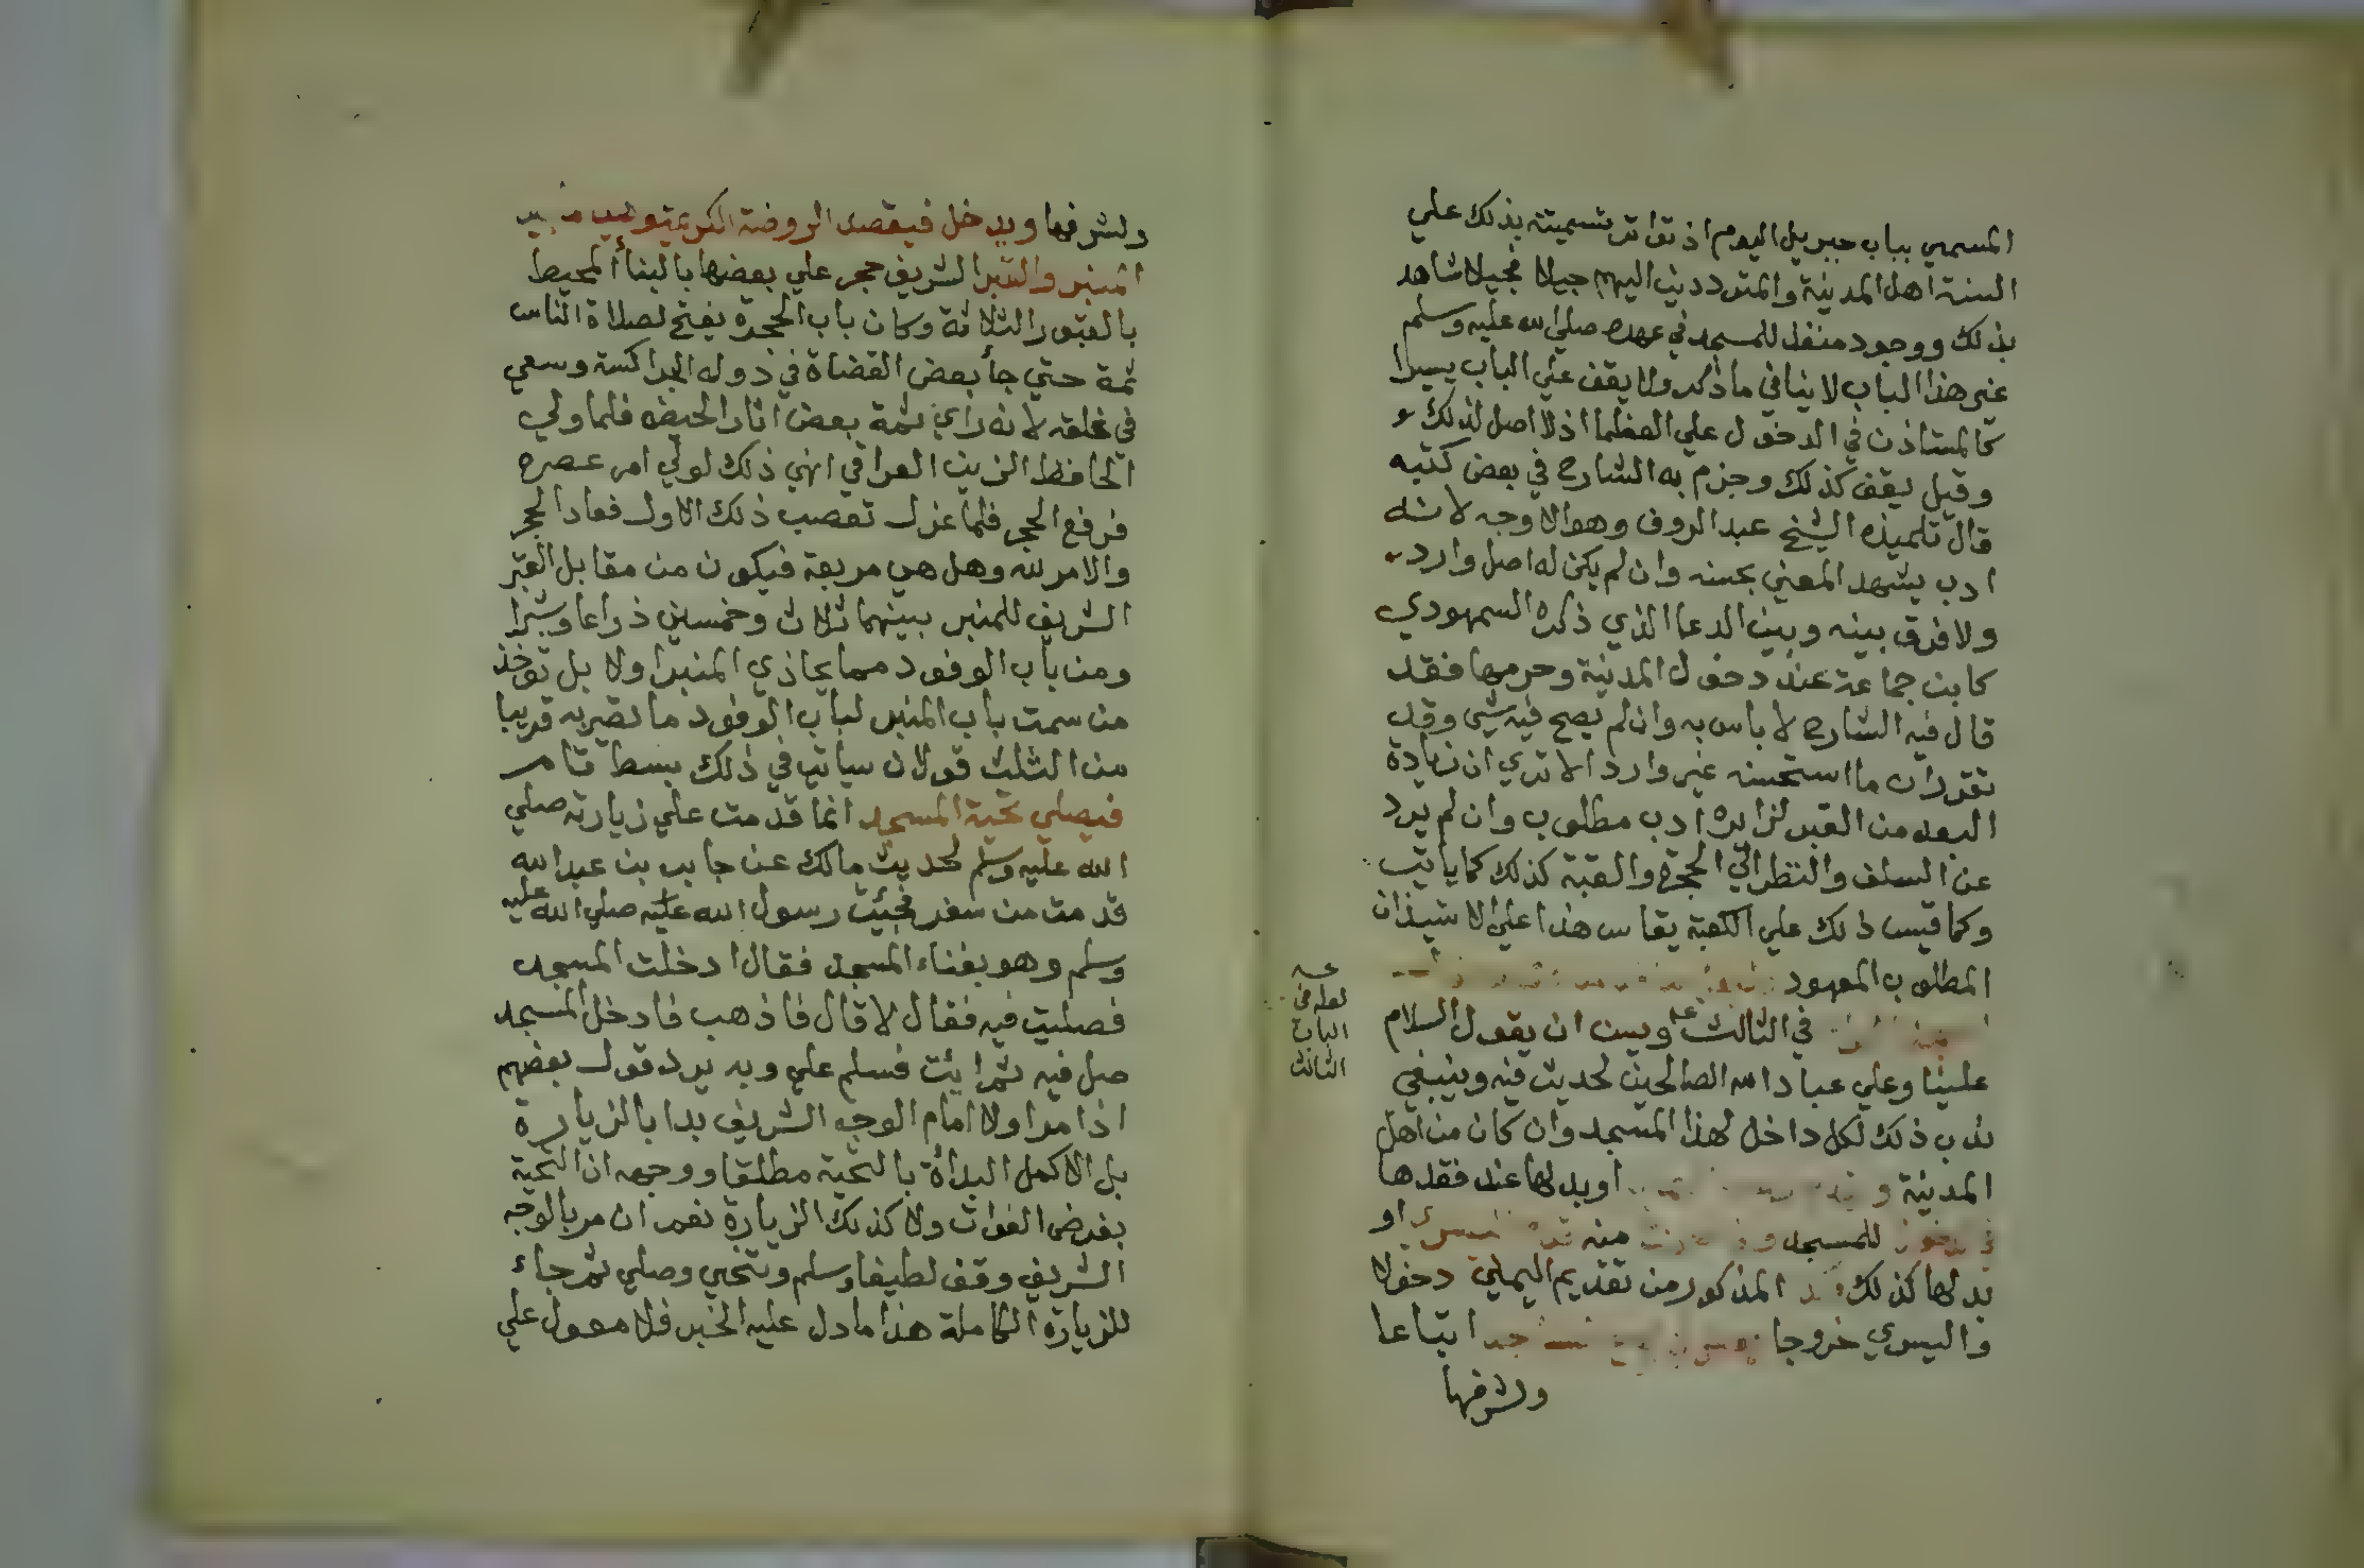 المسمي بباب جبريل اليوم اذ تواتر تسميته بذلك علي
السنة اهل المدينة والمترددين اليهم جيلا فجيلا شاهد
بذلك ووجود منفذ للمسجد في عهده صلي الله عليه وسلم
غير هذا الباب لا ينافي ما ذكر ولا يقف علي الباب يسيرا
كالمستاذن في الدخول علي العظما اذ لا اصل لذلك
وقيل يقف كذلك وجزم به الشارح في بعض كتبه
قال تلميذه الشيخ عبد الروف وهو الاوجه لانه
ادب يشهد المعني بحسنه وان لم يكن له اصل وارد
ولا فرق بينه وبين الدعا الذي ذكره السمهودي
كابن جماعة عند دخول المدينة وحرمها فقد
قال فيه الشارح لا باس به وان لم يصح فيه شي وقد
تقرر ان ما استحسنه غير وارد الا تري ان زيادة
البعد من القبر لزايره ادب مطلوب وان لم يرد
عن السلف والنظر الي الحجرة والقبة كذلك كما ياتي
وكما قيس ذلك علي الكعبة يقاس هذا علي الاستيذان
المطلوب المعهود
في الثالث ويسن ان يقول السلام
علينا وعلي عباد الله الصالحين لحديث فيه وينبغي
ندب ذلك لكل داخل لهذا المسجد وان كان من اهل
المدينة و او بدلها عند فقدها
للمسجد منه او
بدلها كذلك المذكور من تقديم اليمني دخولا
واليسري خروجا اتباعا
ولشرفها
عــه
لعله في
الباب
الثالث
ولشرفها ويدخل فيقصد الروضة الكريمة
المنبر والقبر الشريف حجر علي بعضها بالبنأ المحيط
بالقبور الثلاثة وكان باب الحجرة يفتح لصلاة الناس
ثمة حتي جأ بعض القضاة في دوله الجراكسة وسعي
في غلقه لانه راي ثمة بعض اثار الحيض فلما ولي
الحافظ الزين العراقي انهي ذلك لولي امر عصره
فرفع الحجر فلما عزل تعصب ذلك الاول فعاد الحجر
والامر لله وهل هي مربعة فيكون من مقابل القبر
الشريف للمنبر بينهما ثلاث وخمسين ذراعا وشبرا
ومن باب الوفود مما يحاذي المنبر اولا بل توخذ
من سمت باب المنبر لباب الوفود ما تصير به قريبا
من الثلث قولان سياتي في ذلك بسط تام
فيصلي تحية المسجد انما قدمت علي زيارته صلي
الله عليه وسلم لحديث مالك عن جابر بن عبد الله
قدمت من سفر فجئت رسول الله عليه صلي الله عليه
وسلم وهو بفناء المسجد فقال ادخلت المسجد
فصليت فيه فقال لا قال فاذهب فادخل المسجد
صل فيه ثم ايت فسلم علي وبه يرد قول بعضهم
اذا مر اولا امام الوجه الشريف بدا بالزيارة
بل الاكمل البدأة بالتحية مطلقا ووجهه ان التحية
بغرض الفوات ولا كذلك الزيارة نعم ان مر بالوجه
الشريف وقف لطيفا وسلم وتنحي وصلي ثم جاء
للزيارة الكاملة هذا ما دل عليه الخبر فلا معول علي